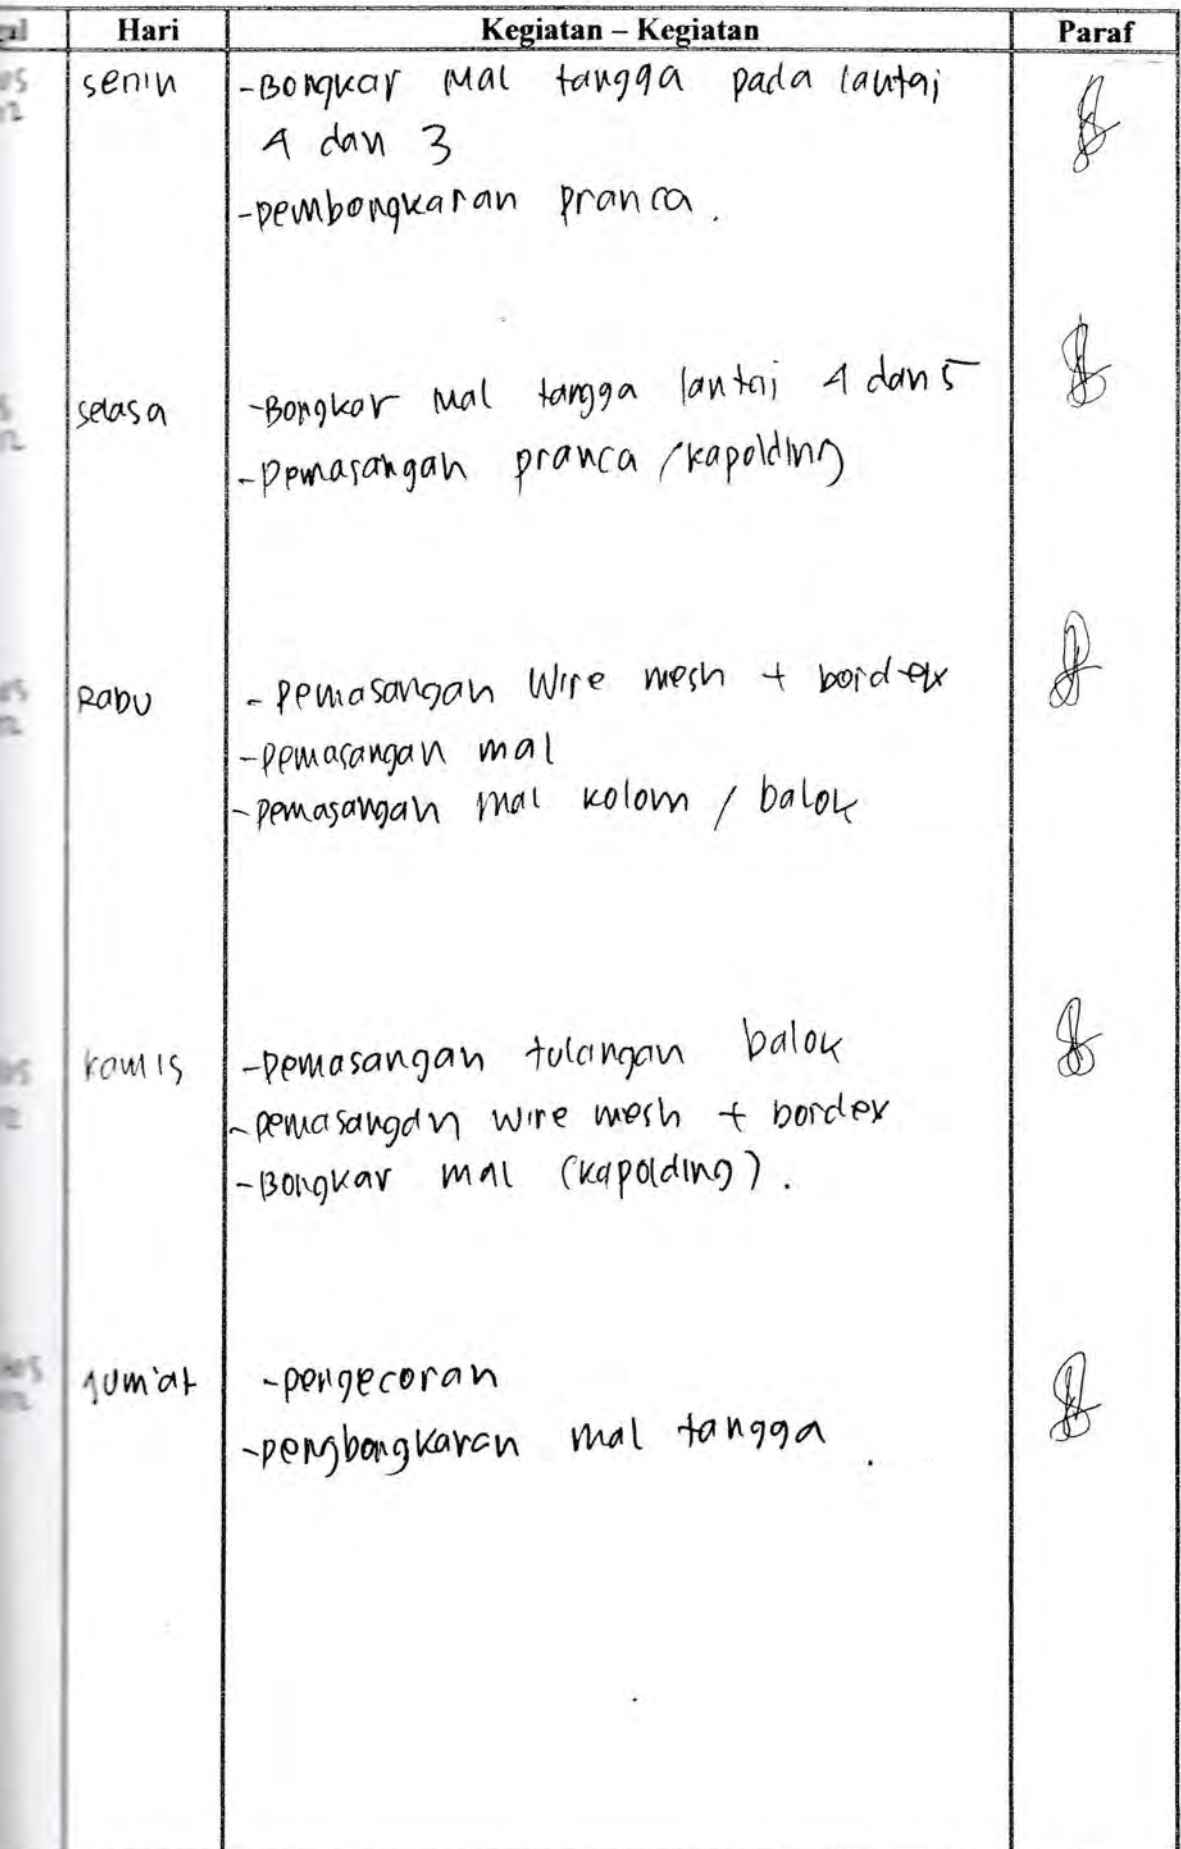 Hari Kegiatan – Kegiatan Paraf
senin -Bongkar mal tangga pada lantai
4 dan 3
-pembongkaran pranca.
selasa -Bongkar mal tangga lantai 4 dan 5
-pemasangan pranca /kapolding
Rabu -pemasangan wire mesh + bordex
-pemasangan mal
-pemasangan mal kolom / balok
kamis -pemasangan tulangan balok
-pemasangan wire mesh + bordex
-Bongkar mal (kapolding).
jum'at -pengecoran
-pengbongkaran mal tangga.